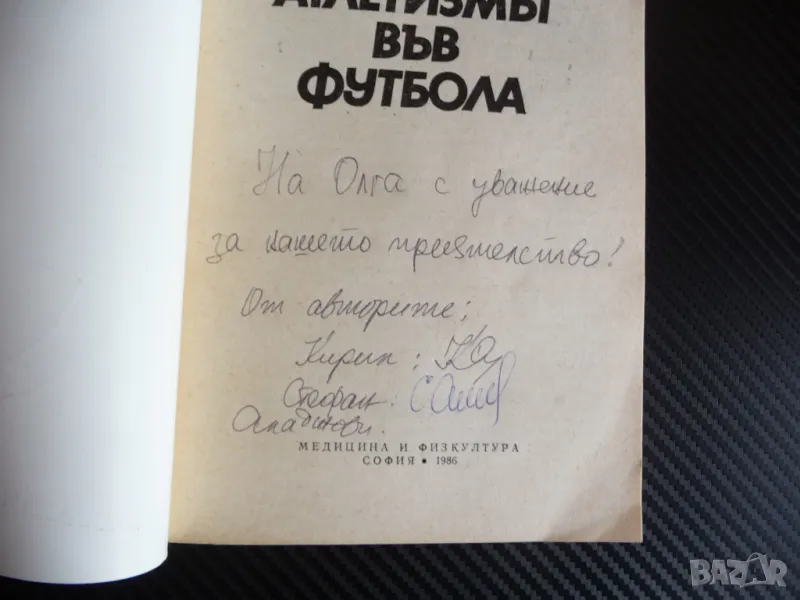 АТЛЕТИЗМЪТ
ВЪВ
ФУТБОЛА
На Олга с уважение
за нашето приятелство!
От авторите:
Кирил:
Стефан:
Аладжови.
МЕДИЦИНА И ФИЗКУЛТУРА
СОФИЯ • 1986
BAZAR